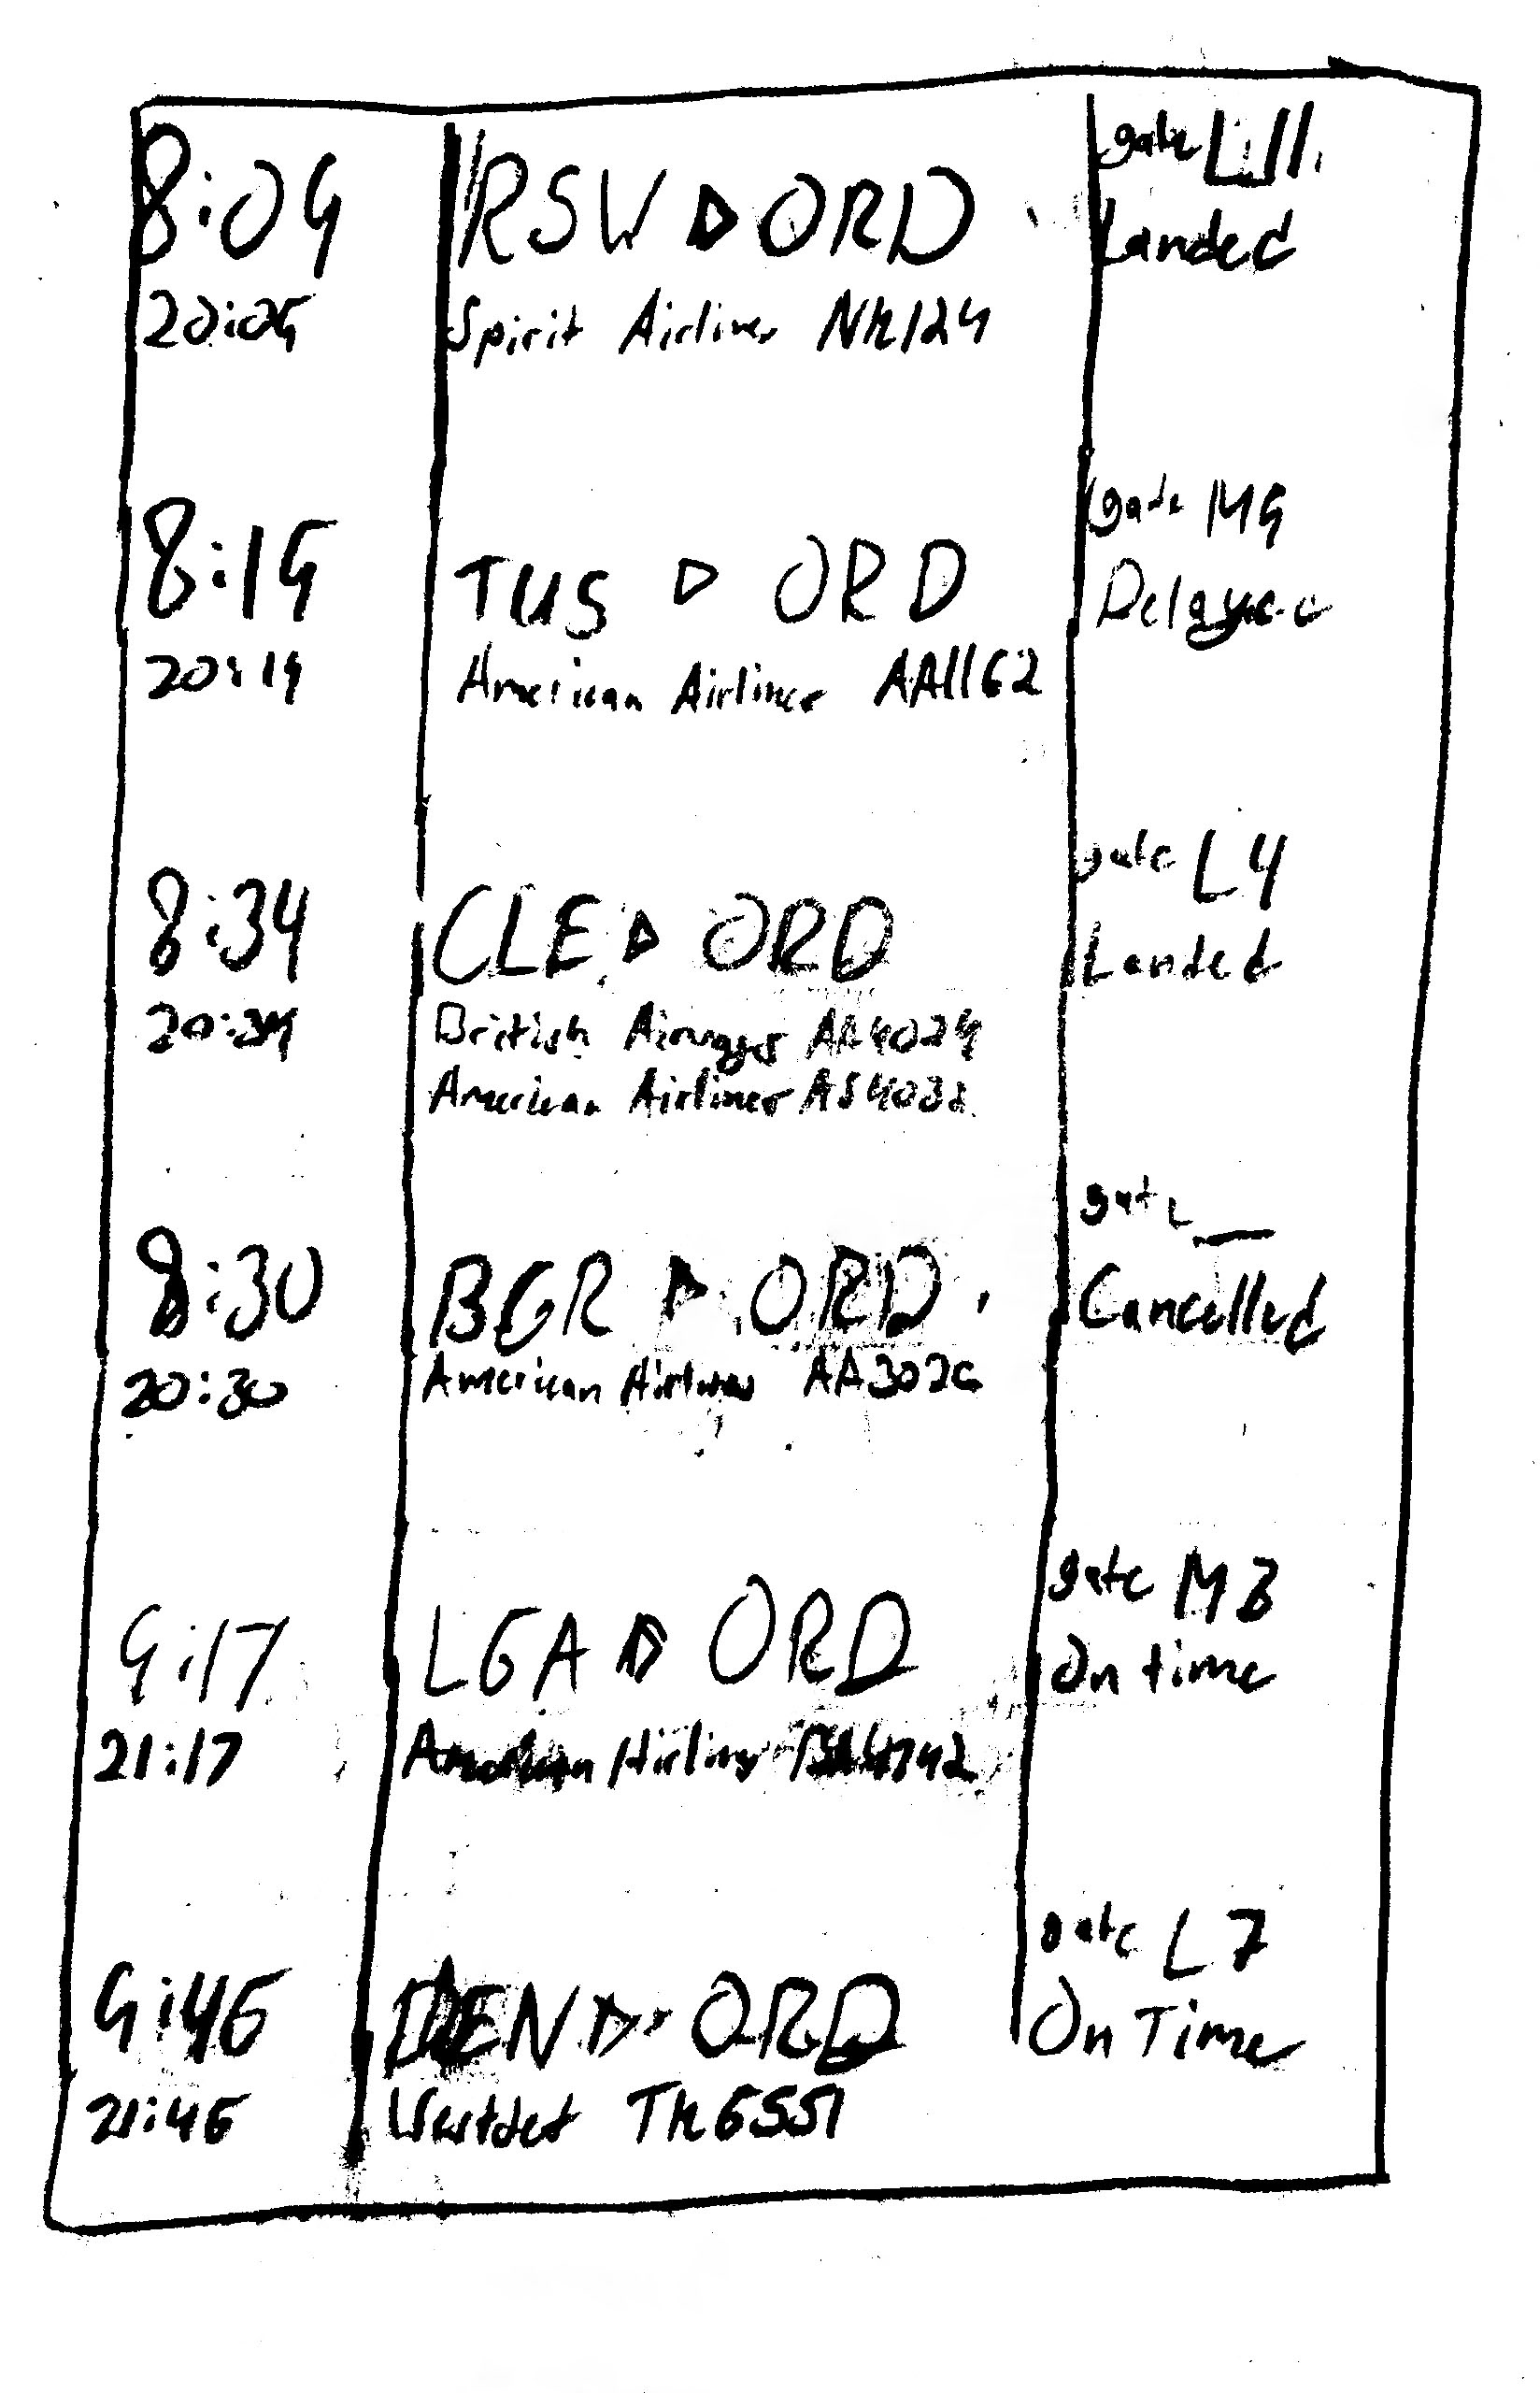 8:09
20:09
RSW ▷ ORD
Spirit Airlines NK124
gate L11
Landed
8:19
20:19
TUS ▷ ORD
American Airlines AA1162
gate M9
Delayed
8:34
20:34
CLE ▷ ORD
British Airways AA4024
American Airlines AS4032
gate L4
Landed
8:30
20:30
BGR ▷ ORD
American Airlines
gate —
Cancelled
9:17
21:17
LGA ▷ ORD
American Airlines
gate M3
On time
9:46
21:46
DEN ▷ ORD
WestJet TK6551
gate L7
On Time